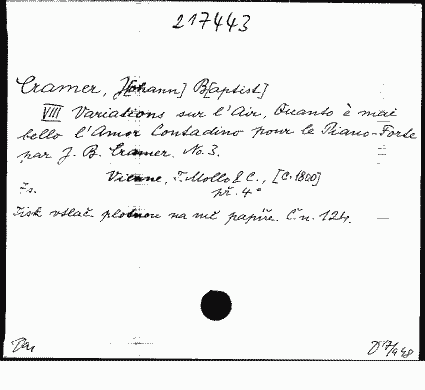 217443
Cramer, J[ohann] B[aptist]
VIII Variations sur l'Air, Quanto è mai
bello l'Amor Contadino pour le Piano-Forte
par J. B. Cramer. No. 3.
Vienne, T. Mollo & C., [c. 1800]
př. 4°
Tisk vtlač. plotnou na
papíře. Č. n. 124.